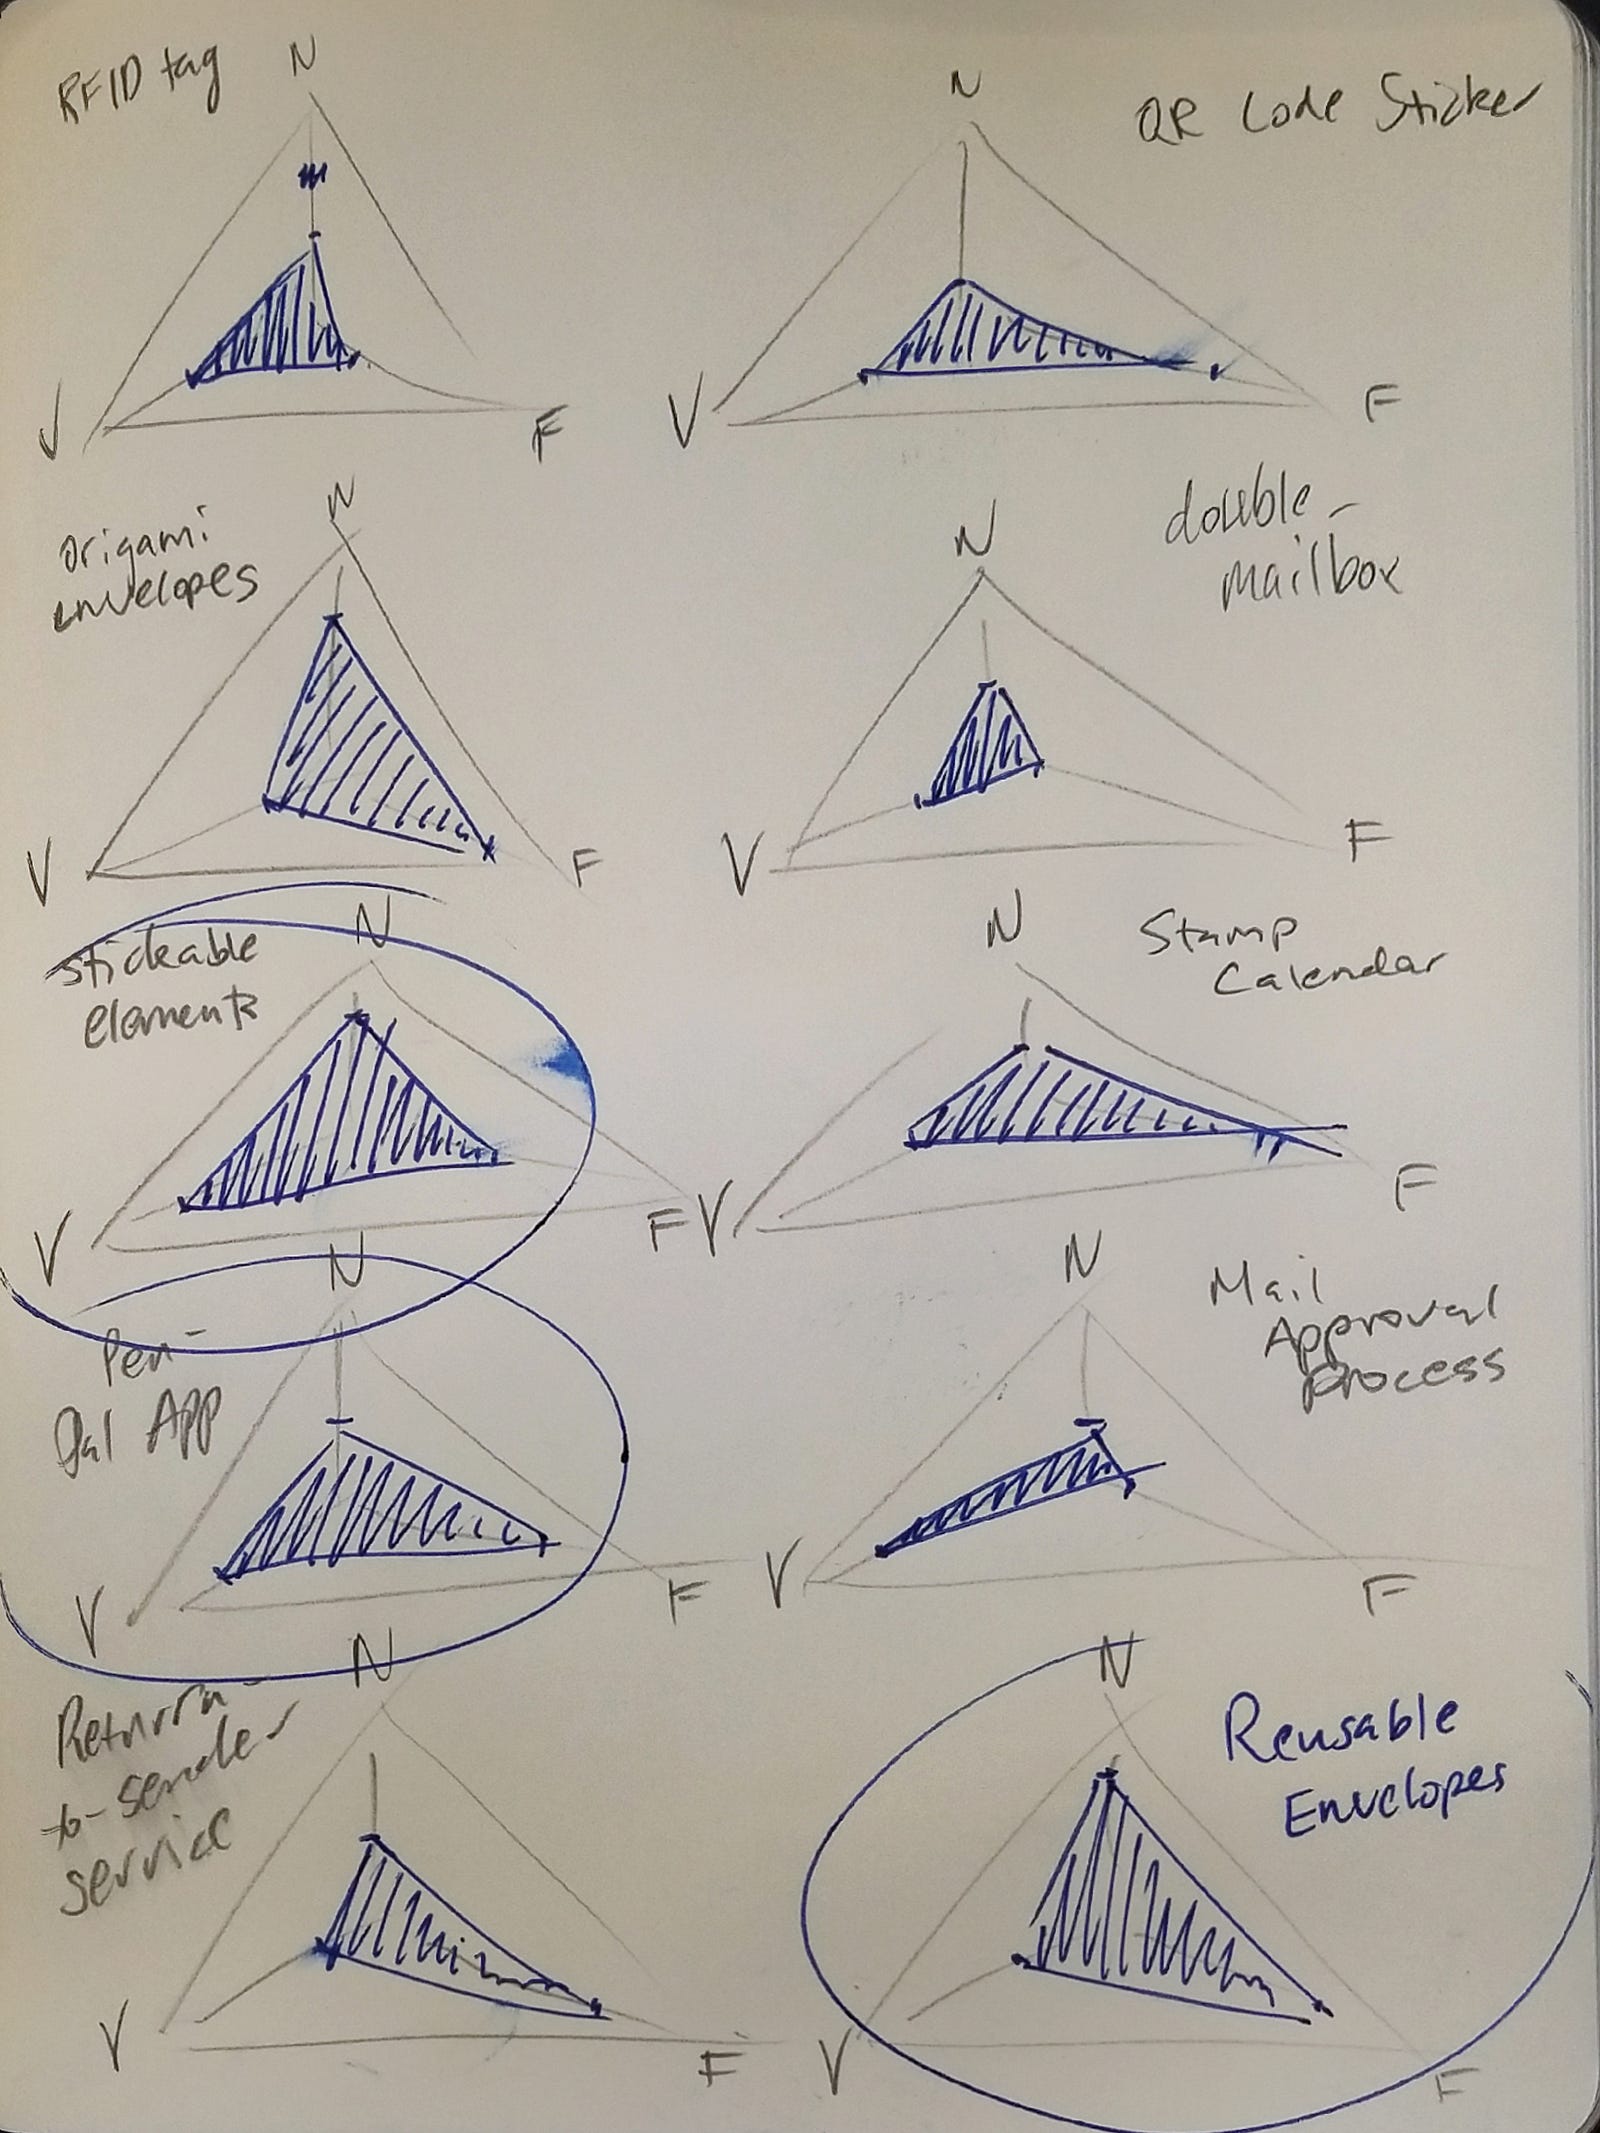 RFID tag
N
V
F
QR Code Sticker
N
V
F
Origami
envelopes
N
V
F
double-
mailbox
N
V
F
Stickeable
elements
N
V
F
Stamp
Calendar
N
V
F
Pen-
Pal App
N
V
F
Mail
Approval
process
N
V
F
Return-
to-sender
service
N
V
F
Reusable
Envelopes
N
V
F